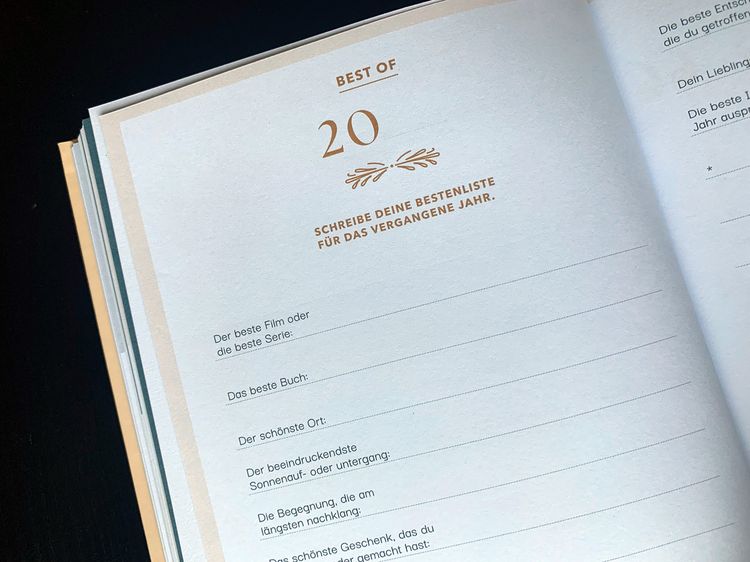 BEST OF
20
SCHREIBE DEINE BESTENLISTE
FÜR DAS VERGANGENE JAHR.
Der beste Film oder
die beste Serie:
Das beste Buch:
Der schönste Ort:
Der beeindruckendste
Sonnenauf- oder untergang:
Die Begegnung, die am
längsten nachklang:
Das schönste Geschenk, das du
der gemacht hast:
Die beste
die du getroffen
Dein
Die beste
Jahr
*